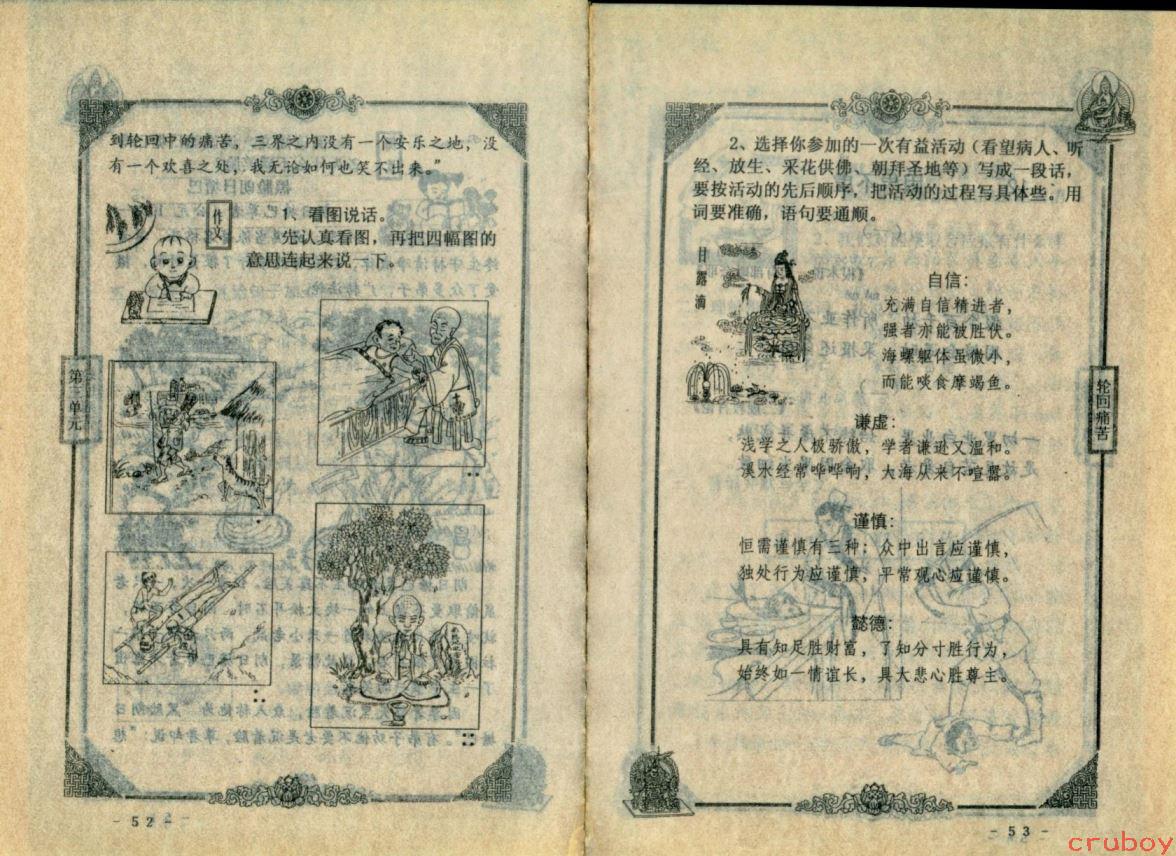 到轮回中的痛苦，三界之内没有一个安乐之地，没
有一个欢喜之处，我无论如何也笑不出来。”
作文
1、看图说话。
先认真看图，再把四幅图的
意思连起来说一下。
第三单元
- 52 -
2、选择你参加的一次有益活动（看望病人、听
经、放生、采花供佛、朝拜圣地等）写成一段话，
要按活动的先后顺序，把活动的过程写具体些。用
词要准确，语句要通顺。
甘露滴
自信：
充满自信精进者，
强者亦能被胜伏。
海螺躯体虽微小，
而能啖食摩竭鱼。
谦虚：
浅学之人极骄傲，学者谦逊又温和。
溪水经常哗哗响，大海从来不喧嚣。
谨慎：
恒需谨慎有三种：众中出言应谨慎，
独处行为应谨慎，平常观心应谨慎。
懿德：
具有知足胜财富，了知分寸胜行为，
始终如一情谊长，具大悲心胜尊主。
轮回痛苦
- 53 -
cruboy